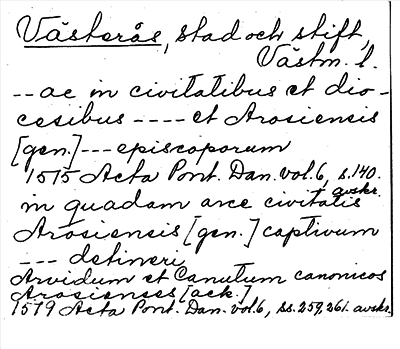 Västerås, stad och stift,
Västm. l.
-- ac in civitatibus et dio-
cesibus ---- et Arosiensis
[gen.] --- episcoporum
1515 Acta Pont. Dan. vol. 6, s. 140.
avskr.
in quadam arce civitatis
Arosiensis [gen.] captivum
--- detineri
Arvidum et Canutum canonicos
Arosienses [ack.]
1519 Acta Pont. Dan. vol. 6, ss. 259, 261. avskr.